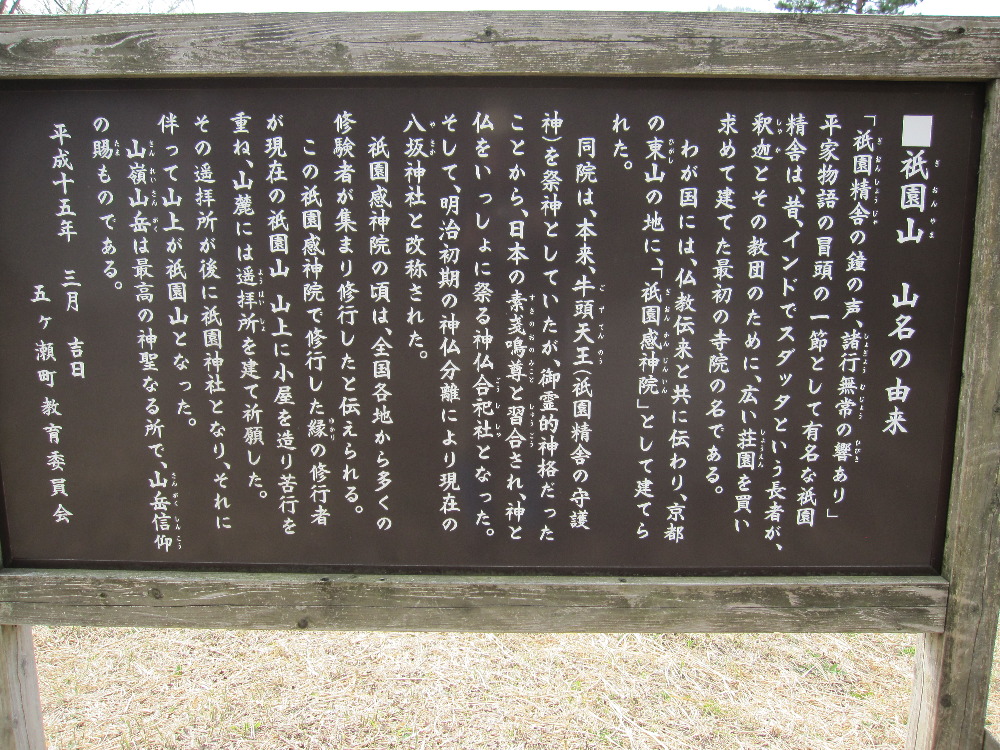 ■祇園山　山名の由来
「祇園精舎の鐘の声、諸行無常の響あり」
平家物語の冒頭の一節として有名な祇園
精舎は、昔、インドでスダッタという長者が、
釈迦とその教団のために、広い荘園を買い
求めて建てた最初の寺院の名である。
わが国には、仏教伝来と共に伝わり、京都
の東山の地に、「祇園感神院」として建てら
れた。
同院は、本来、牛頭天王(祇園精舎の守護
神)を祭神としていたが、御霊的神格だった
ことから、日本の素戔鳴尊と習合され、神と
仏をいっしょに祭る神仏合祀社となった。
そして、明治初期の神仏分離により現在の
八坂神社と改称された。
祇園感神院の頃は、全国各地から多くの
修験者が集まり修行したと伝えられる。
この祇園感神院で修行した縁の修行者
が現在の祇園山　山上に小屋を造り苦行を
重ね、山麓には遥拝所を建て祈願した。
その遥拝所が後に祇園神社となり、それに
伴って山上が祇園山となった。
山嶺山岳は最高の神聖なる所で、山岳信仰
の賜ものである。
平成十五年　三月　吉日
五ヶ瀬町教育委員会